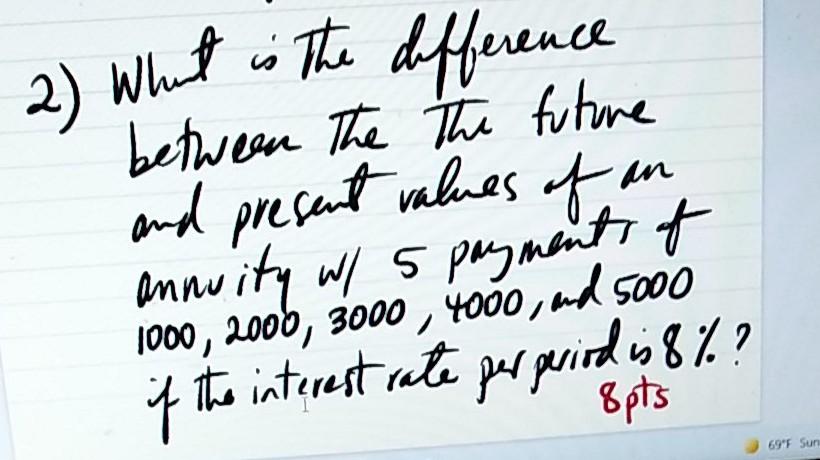 2) What is The difference
between The The future
and present values of an
annuity w/ 5 payments of
1000, 2000, 3000, 4000, and 5000
if the interest rate per period is 8%?
8pts
69°F Sun